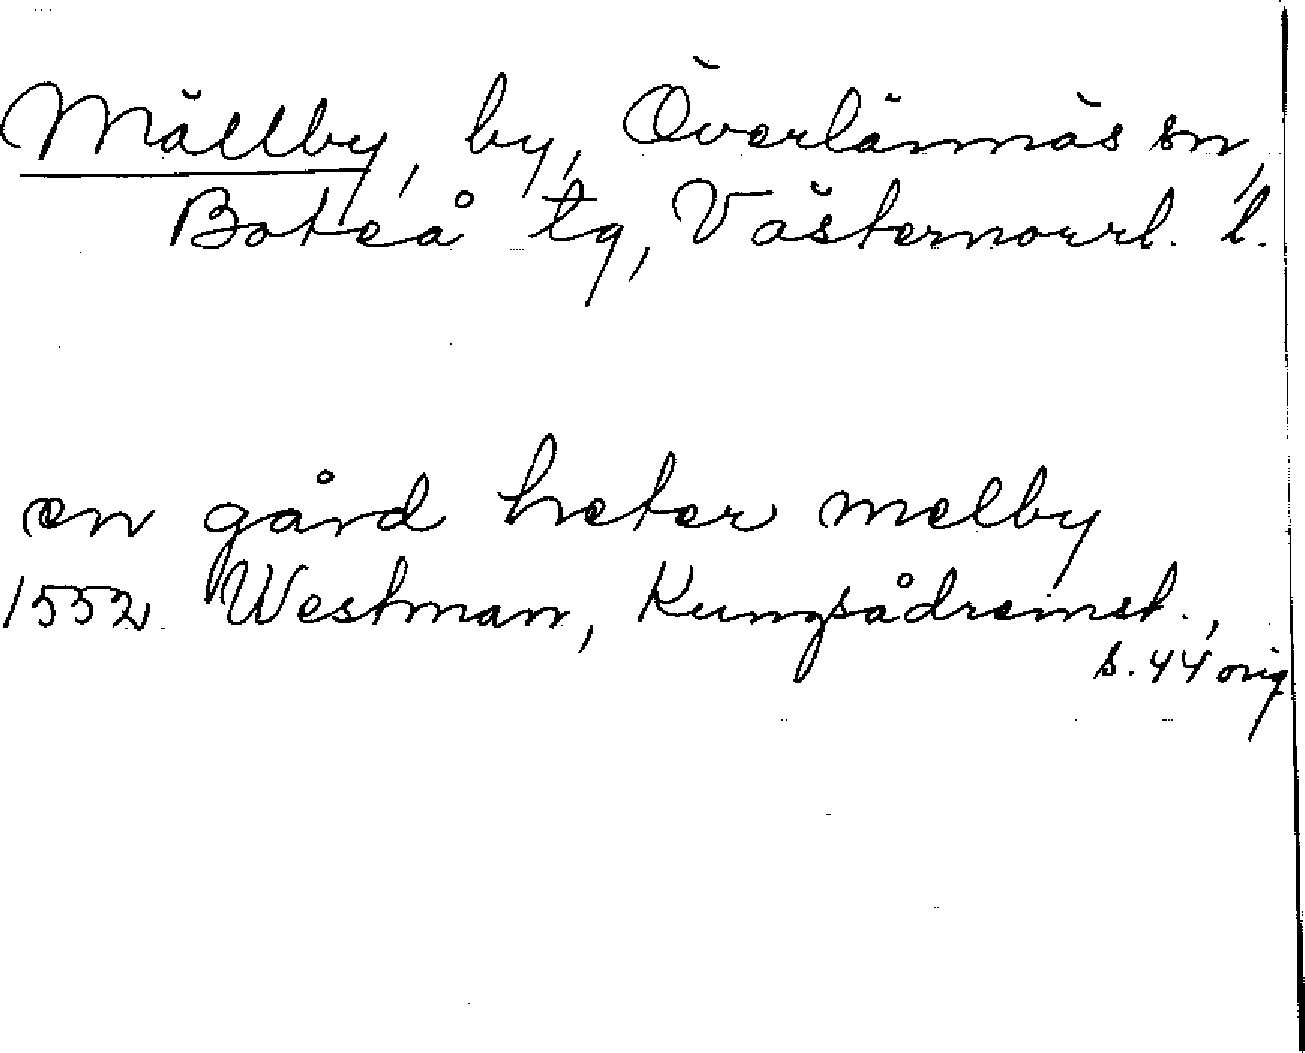 Mällby, by, Överlännäs sn,
Boteå tg, Västernorrl. l.
en gård heter melby
1552 Westman, Kungsådreinst.,
s. 44 orig